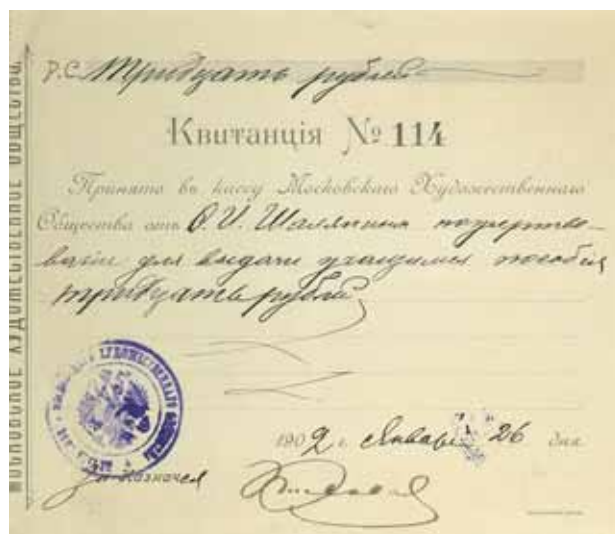 МОСКОВСКОЕ ХУДОЖЕСТВЕННОЕ ОБЩЕСТВО.
Р.С. Тридцать рублей
Квитанція № 114
Принято въ кассу Московскаго Художественнаго
Общества отъ Ѳ. И. Шаляпина пожертво-
ваніе для выдачи учащимся пособія
тридцать рублей
1902 г. Января 26 дня
Казначей